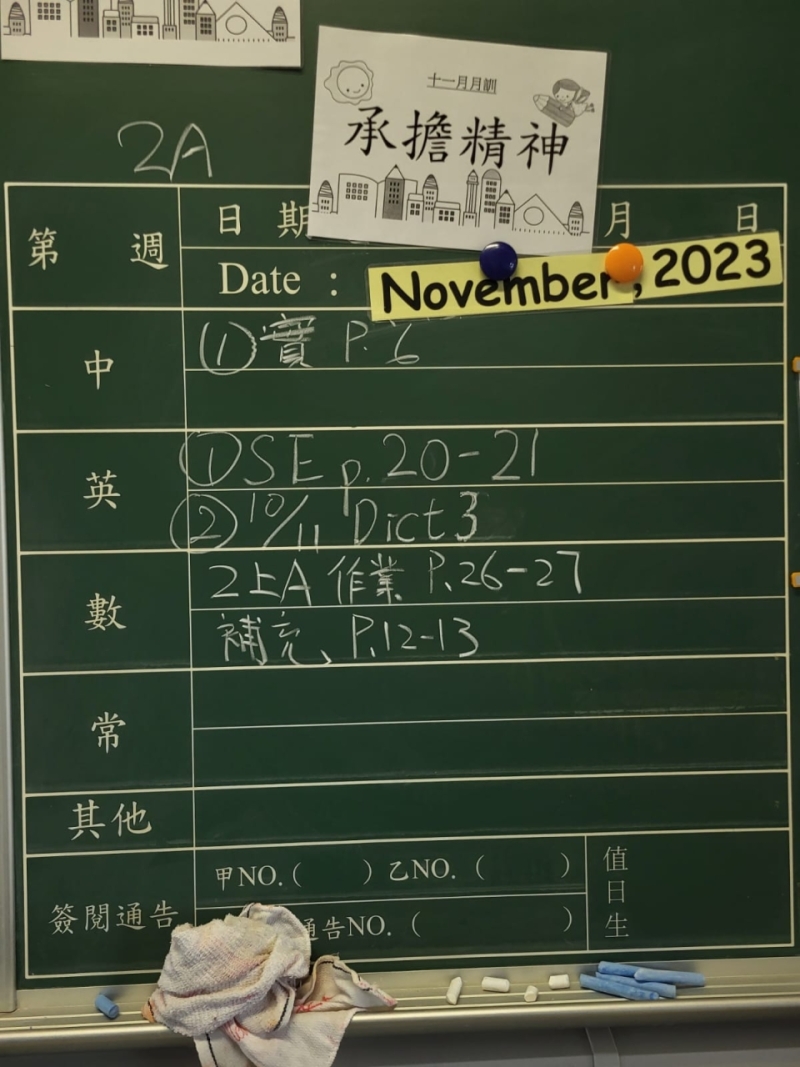 十一月月訓
承擔精神
2A
第 週
日 期 月 日
Date : November, 2023
中
① 實 P.6
英
① DSE p.20-21
② 10/11 Dict 3
數
2上A 作業 P.26-27
補充、P.12-13
常
其他
簽閱通告
甲NO.( ) 乙NO.( )
通告NO.( )
值日生